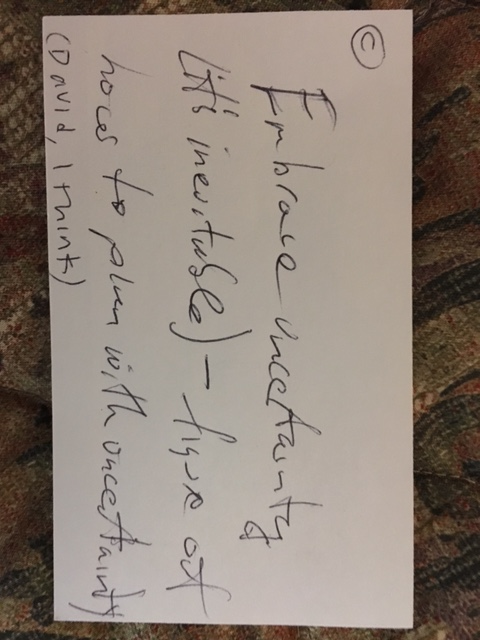 ©
Embrace uncertainty
(it's inevitable) – figure out
how to plan with uncertainty
(David, I think)